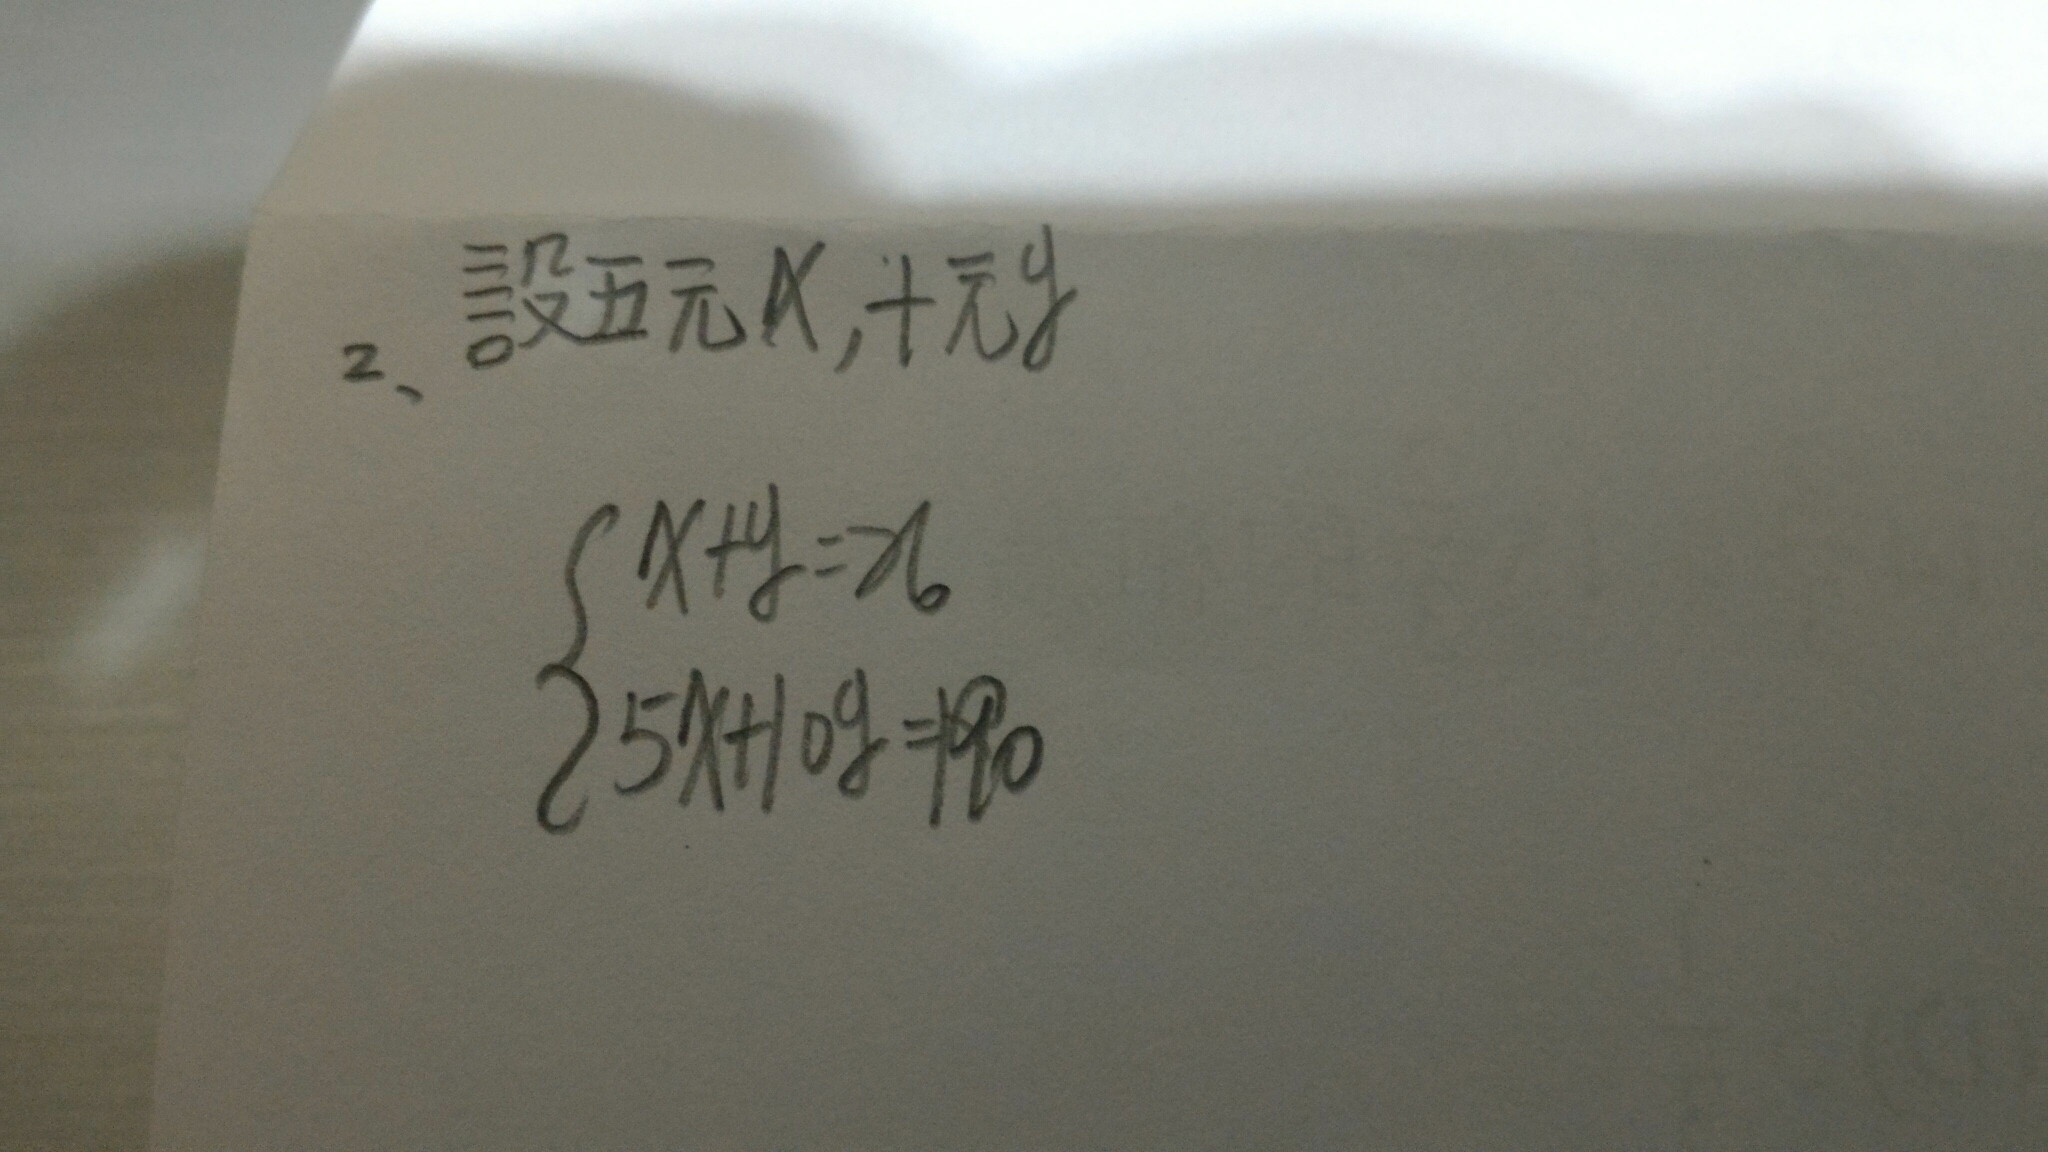 2、設五元x,十元y
x+y=26
5x+10y=190